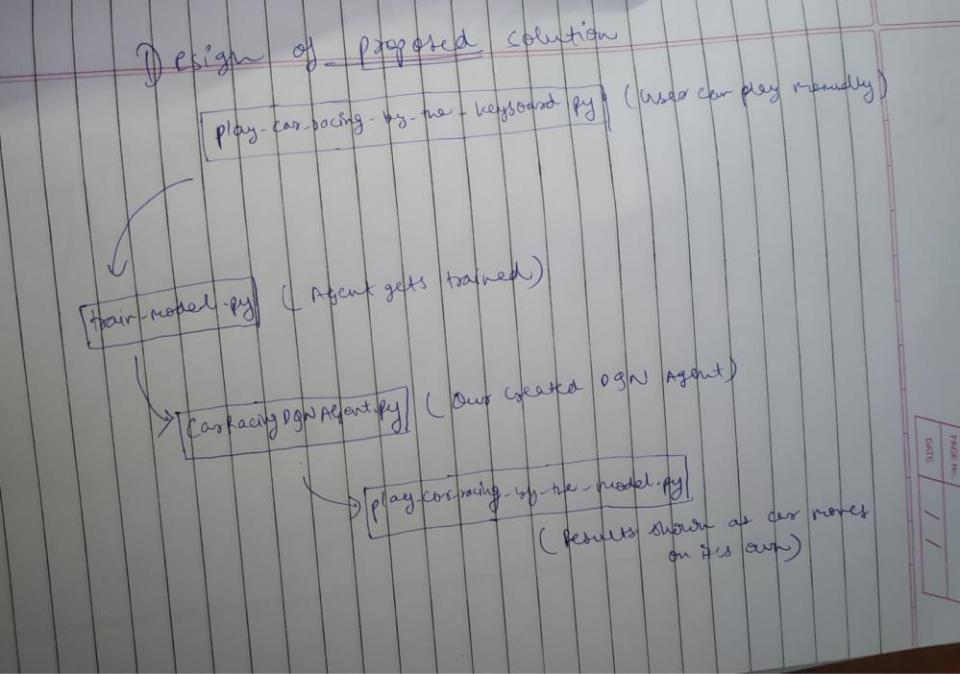 Design of proposed solution
play-car-racing-by-the-keyboard.py (User can play manually)
train-model.py (Agent gets trained)
CarRacingDQNAgent.py (Our created DQN Agent)
play-car-racing-by-the-model.py
(Results shown as car moves
on its own)
PAGE No.
DATE